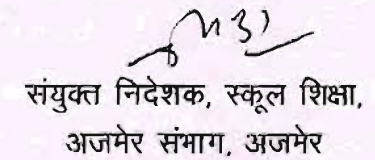 संयुक्त निदेशक, स्कूल शिक्षा,
अजमेर संभाग, अजमेर